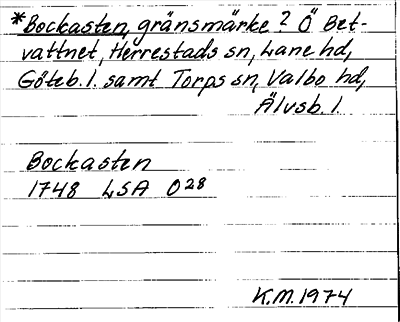 *Bockasten, gränsmärke? Ö Bet-
vattnet, Herrestads sn, Lane hd,
Göteb. l. samt Torps sn, Valbo hd,
Älvsb. l.
Bockasten
1748 LSA O28
K.M. 1974